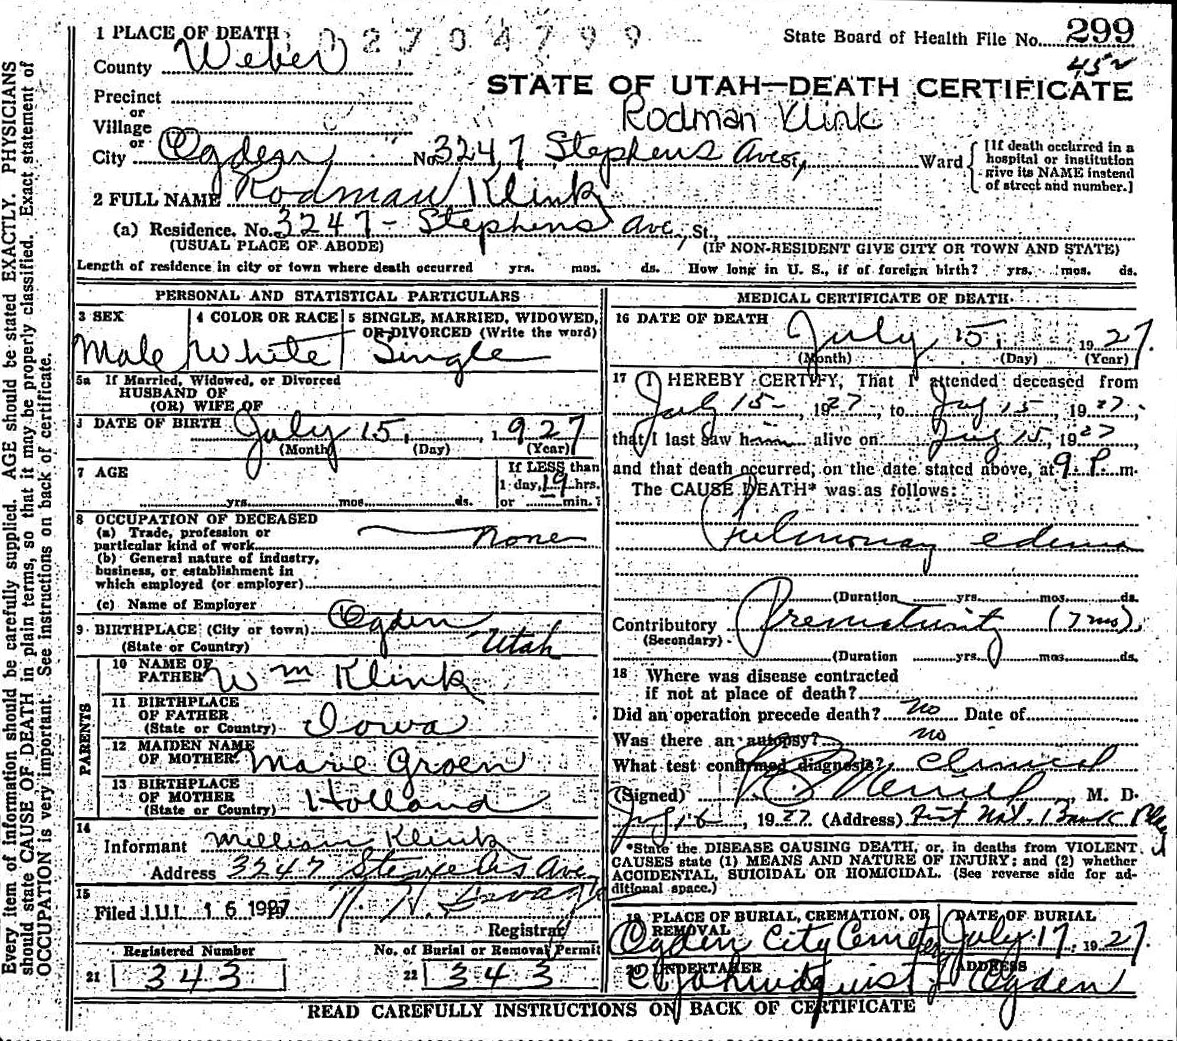 1 PLACE OF DEATH
2704799
State Board of Health File No. 299
452
County Weber
STATE OF UTAH—DEATH CERTIFICATE
Precinct
or
Village
or
Rodman Klink
City Ogden No. 3247 Stephens Ave St., Ward
[If death occurred in a hospital or institution give its NAME instead of street and number.]
2 FULL NAME Rodman Klink
(a) Residence. No. 3247 - Stephens Ave, St.,
(USUAL PLACE OF ABODE) (IF NON-RESIDENT GIVE CITY OR TOWN AND STATE)
Length of residence in city or town where death occurred yrs. mos. ds. How long in U. S., if of foreign birth? yrs. mos. ds.
PERSONAL AND STATISTICAL PARTICULARS
3 SEX 4 COLOR OR RACE 5 SINGLE, MARRIED, WIDOWED,
OR DIVORCED (Write the word)
Male White Single
5a If Married, Widowed, or Divorced
HUSBAND OF
(OR) WIFE OF
DATE OF BIRTH July 15, 1927
(Month) (Day) (Year)
7 AGE
If LESS than
1 day, 19 hrs.
yrs. mos. ds. or — min.?
8 OCCUPATION OF DECEASED
(a) Trade, profession or
particular kind of work None
(b) General nature of industry,
business, or establishment in
which employed (or employer)
(c) Name of Employer
9 BIRTHPLACE (City or town) Ogden
(State or Country) Utah
PARENTS
10 NAME OF
FATHER Wm Klink
11 BIRTHPLACE
OF FATHER
(State or Country) Iowa
12 MAIDEN NAME
OF MOTHER Marie Groen
13 BIRTHPLACE
OF MOTHER
(State or Country) Holland
14
Informant William Klink
Address 3247 Stephens Ave
15
Filed JUL 16 1927
Registrar
Registered Number No. of Burial or Removal Permit
21 343 22 343
MEDICAL CERTIFICATE OF DEATH
16 DATE OF DEATH
July 15, 1927.
(Month) (Day) (Year)
17 I HEREBY CERTIFY, That I attended deceased from
July 15-, 1927, to July 15, 1927.
that I last saw him alive on July 15, 1927,
and that death occurred, on the date stated above, at 9 P. m.
The CAUSE DEATH* was as follows:
Pulmonay edema
(Duration yrs. mos. ds.
Contributory Prematurity (7 mo).
(Secondary)
(Duration yrs. mos. ds.
18 Where was disease contracted
if not at place of death?
Did an operation precede death? no Date of
Was there an autopsy? no
What test confirmed diagnosis? Clinical
(Signed) M. D.
July 16, 1927 (Address) First Nat. Bank Bldg
*State the DISEASE CAUSING DEATH, or, in deaths from VIOLENT
CAUSES state (1) MEANS AND NATURE OF INJURY; and (2) whether
ACCIDENTAL, SUICIDAL OR HOMICIDAL. (See reverse side for ad-
ditional space.)
19 PLACE OF BURIAL, CREMATION, OR
REMOVAL
DATE OF BURIAL
Ogden City Cemetery July 17, 1927.
20 UNDERTAKER ADDRESS
Lindquist Ogden
READ CAREFULLY INSTRUCTIONS ON BACK OF CERTIFICATE
Every item of information should be carefully supplied. AGE should be stated EXACTLY. PHYSICIANS
should state CAUSE OF DEATH in plain terms, so that it may be properly classified. Exact statement of
OCCUPATION is very important. See instructions on back of certificate.